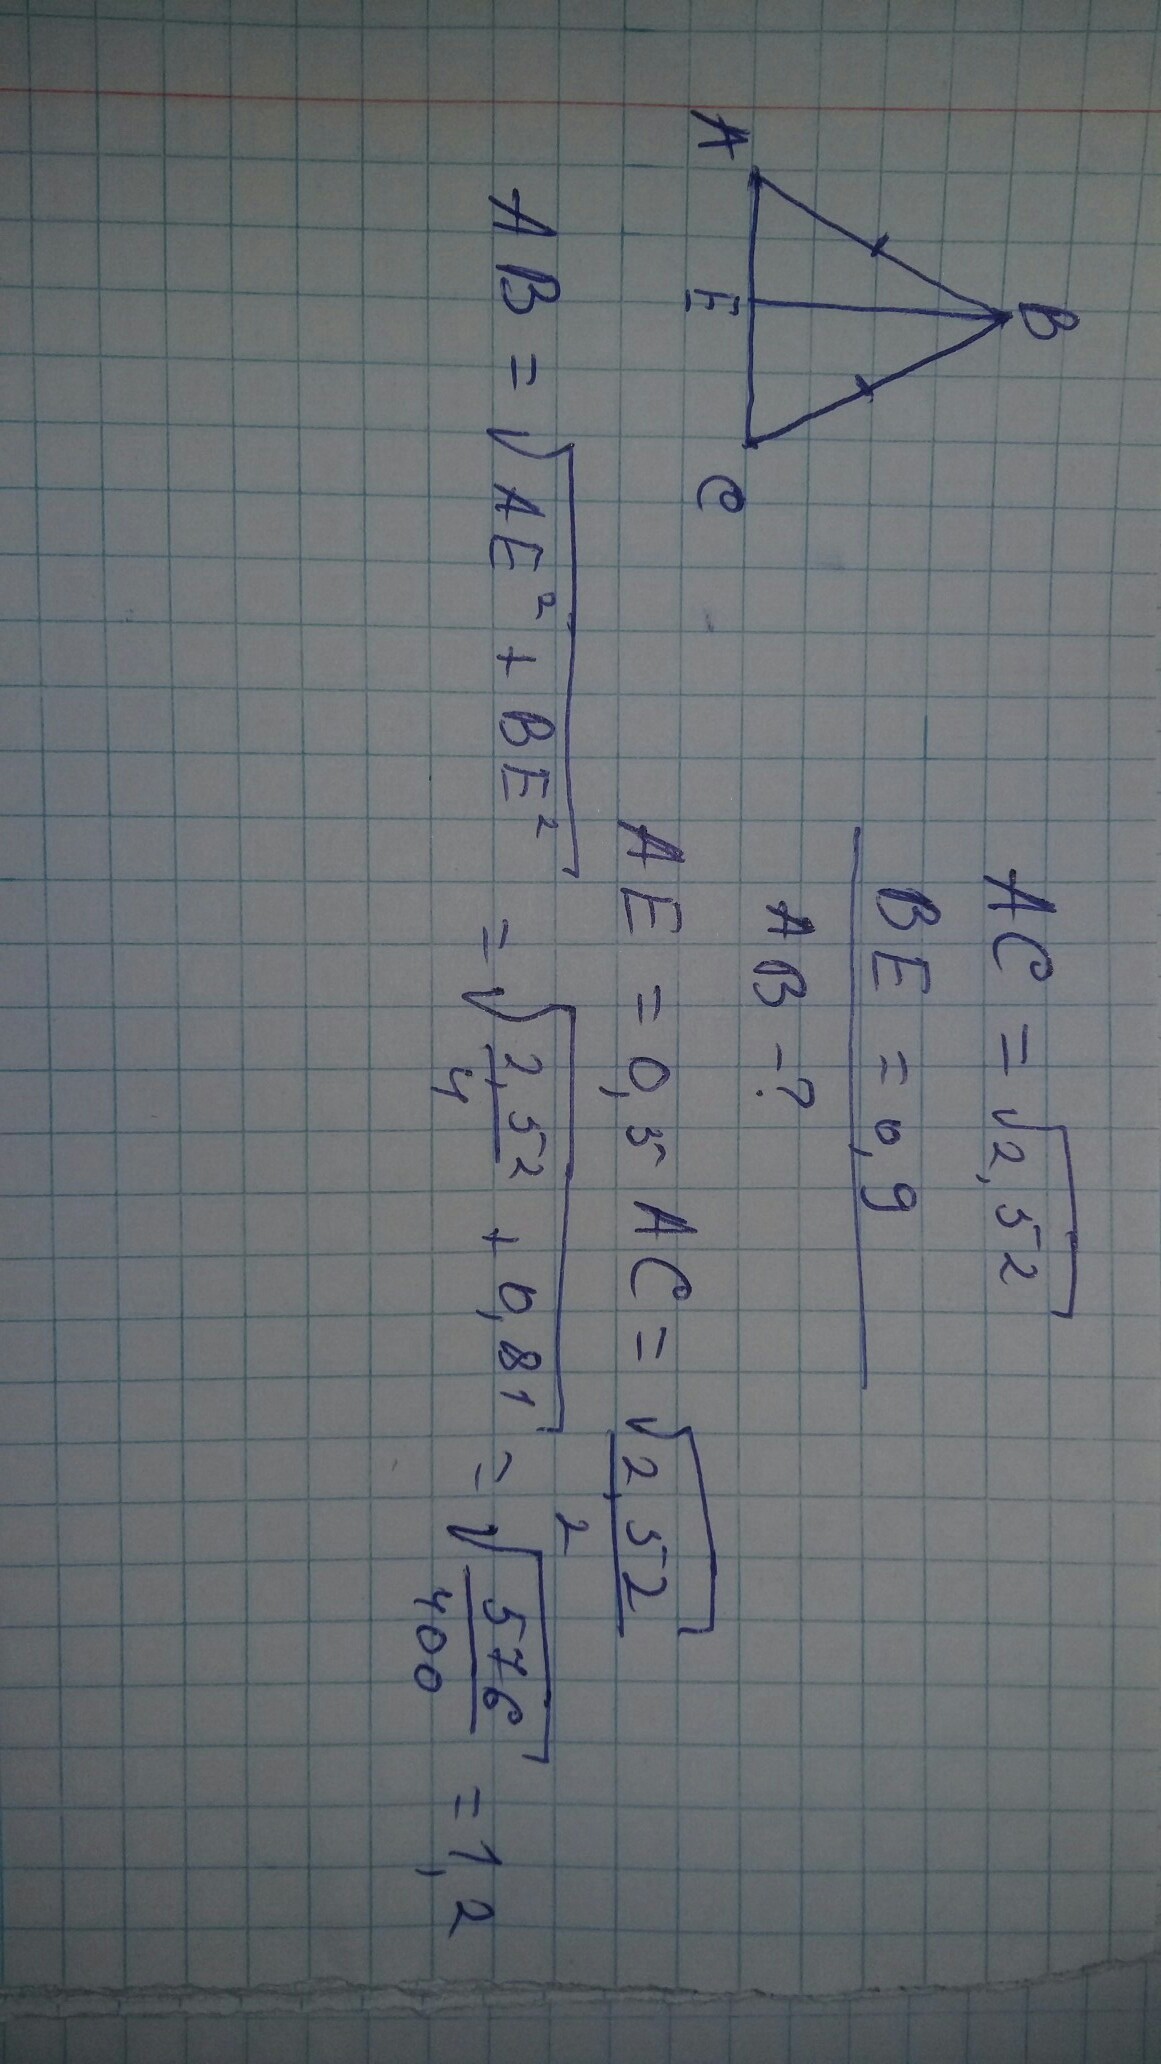 B
A
E
C
AC = √2,52
BE = 0,9
AB - ?
AE = 0,5 AC = √2,52 / 2
AB = √AE² + BE² = √2,52/4 + 0,81 = √576/400 = 1,2